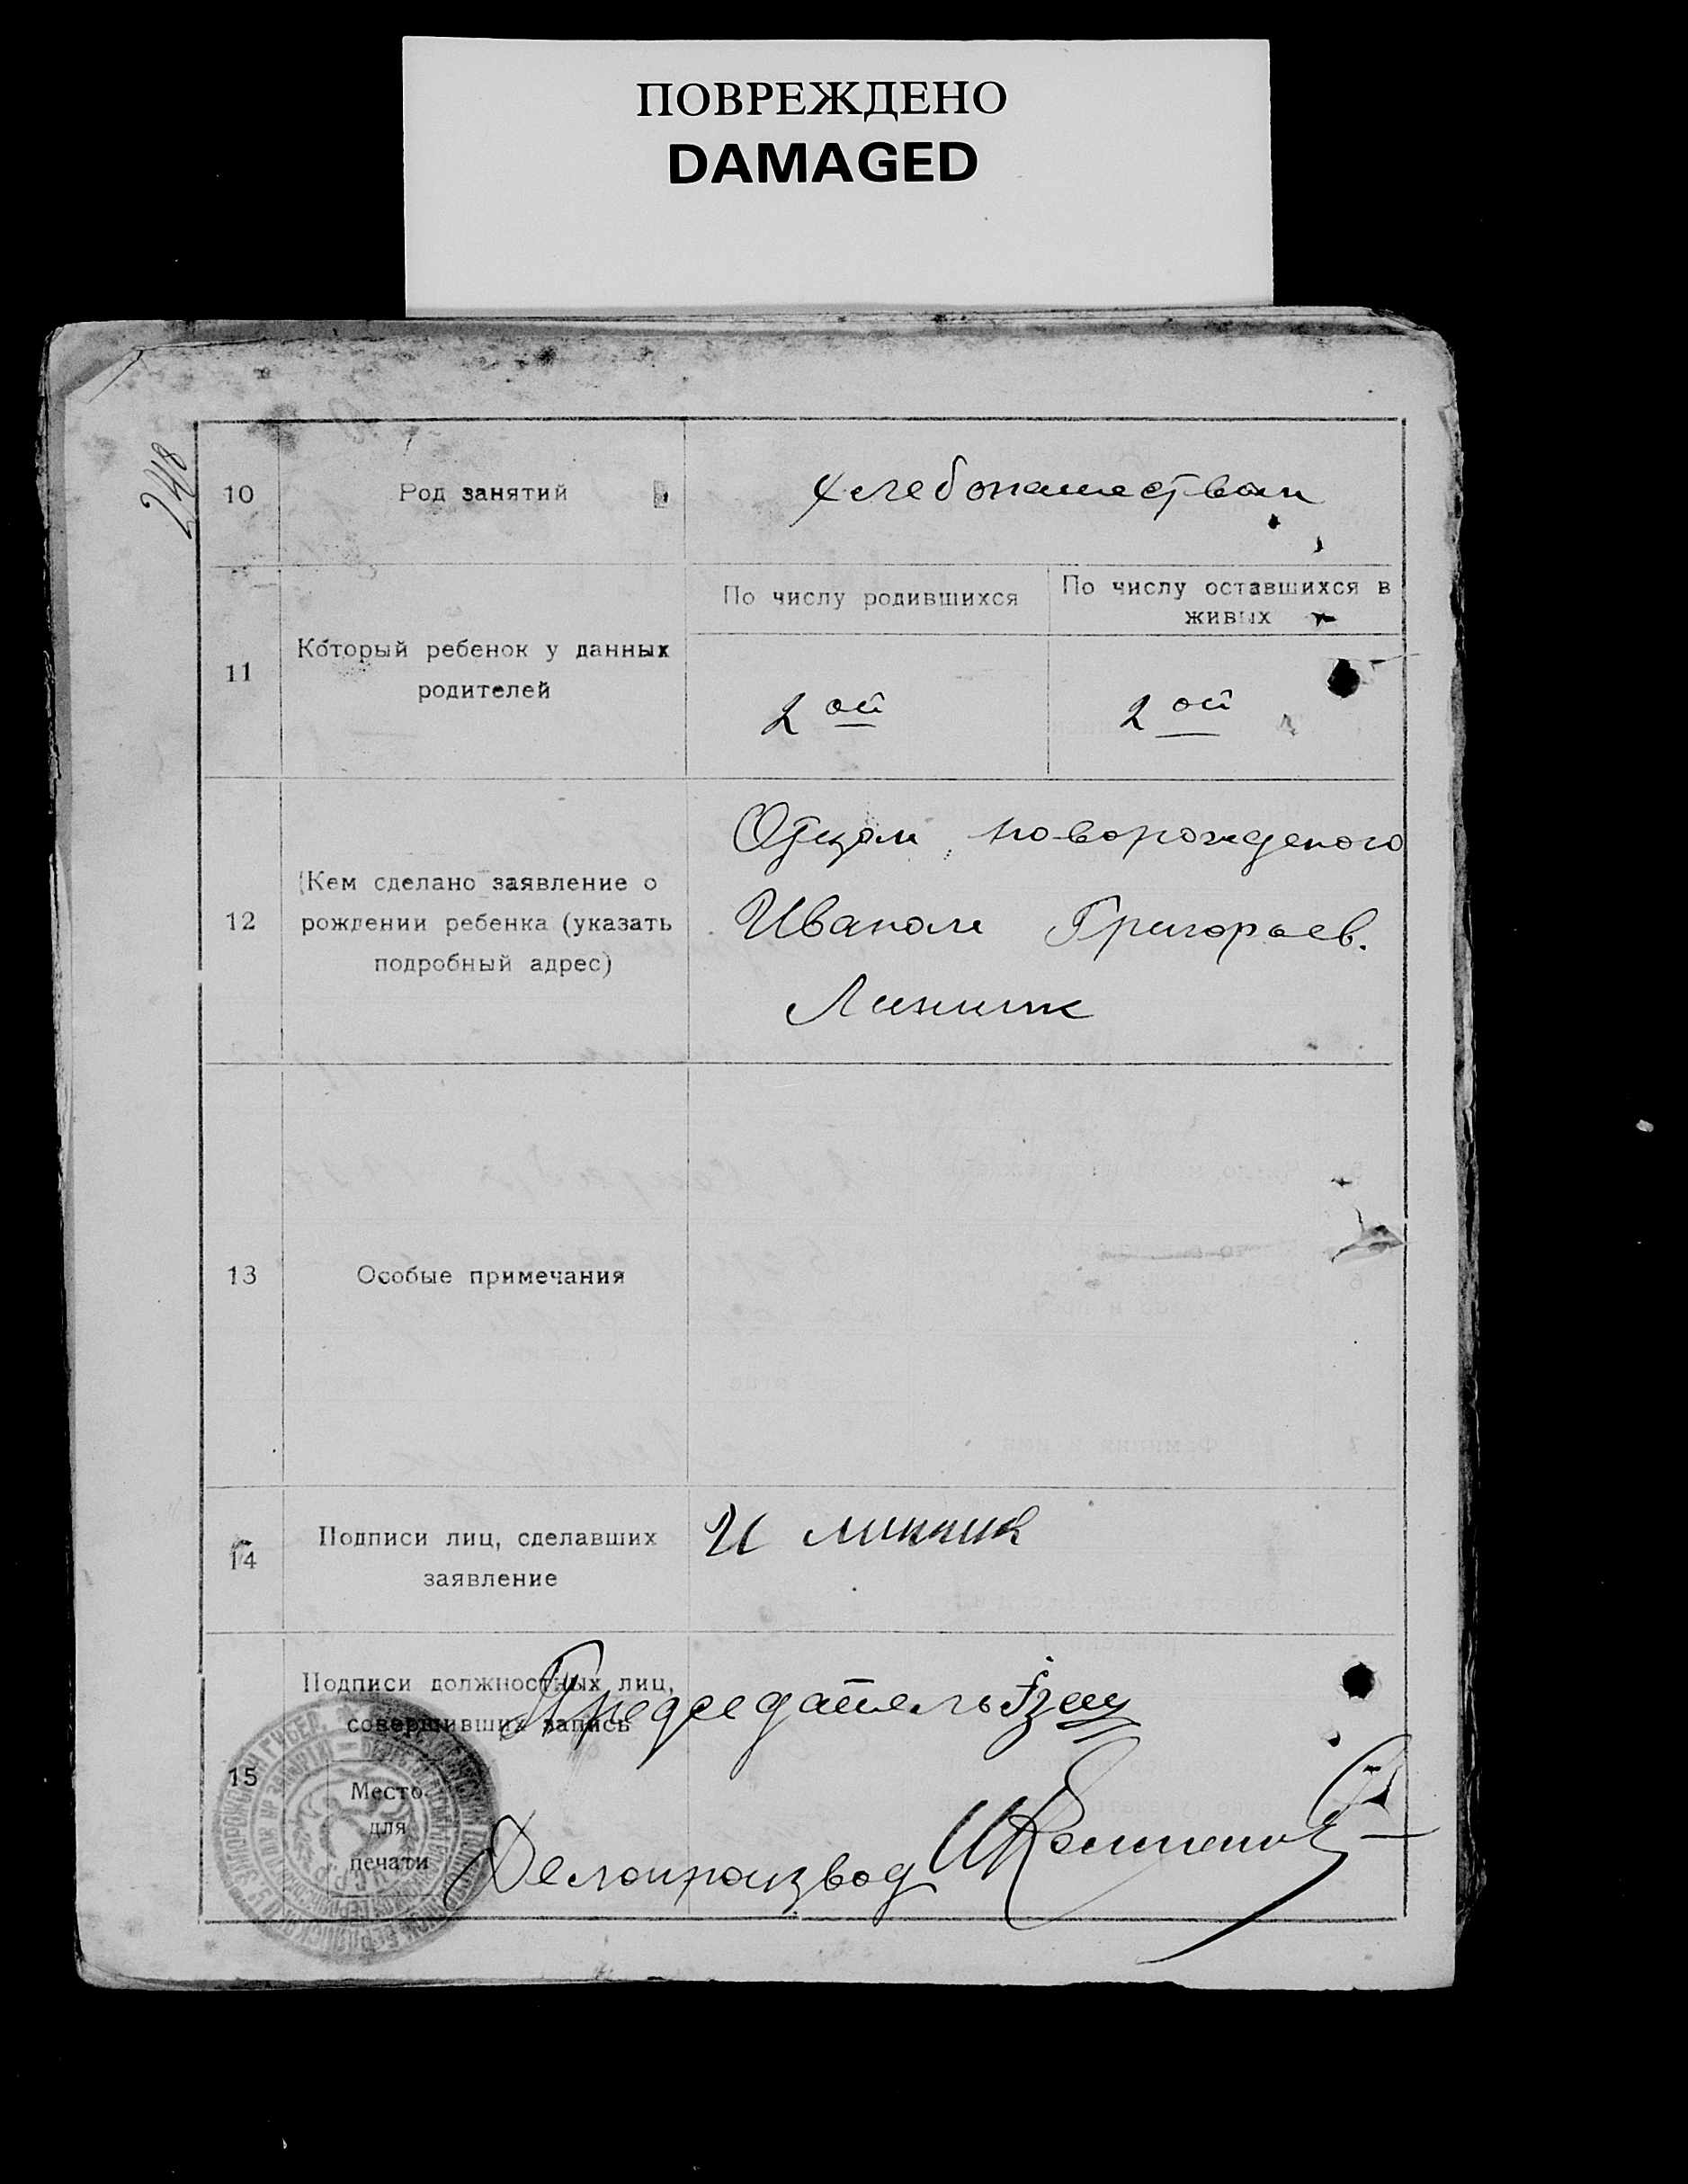 ПОВРЕЖДЕНО
DAMAGED
248
10
Род занятий
хлебопашеством
11
Который ребенок у данных
родителей
По числу родившихся
По числу оставшихся в
живых
2 ой
2 ой
12
(Кем сделано заявление о
рождении ребенка (указать
подробный адрес)
Отцом новорожденого
Иваном Григорьев.
Линник
13
Особые примечания
14
Подписи лиц, сделавших
заявление
И линник
15
Подписи должностных лиц,
совершивших запись
Председатель
Место
для
печати
Делопроизвод